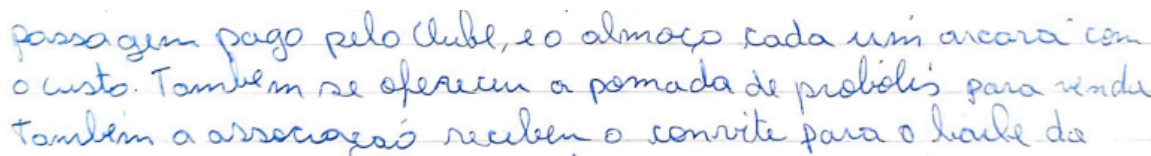 passagem pago pelo Clube, e o almoço cada um arcará com
o custo. Também se ofereceu a pomada de probólis para vender
Também a associação recebeu o convite para o baile da